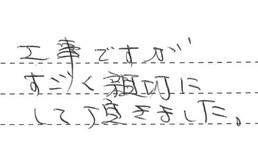 工事ですが
すごく親切に
して頂きました。